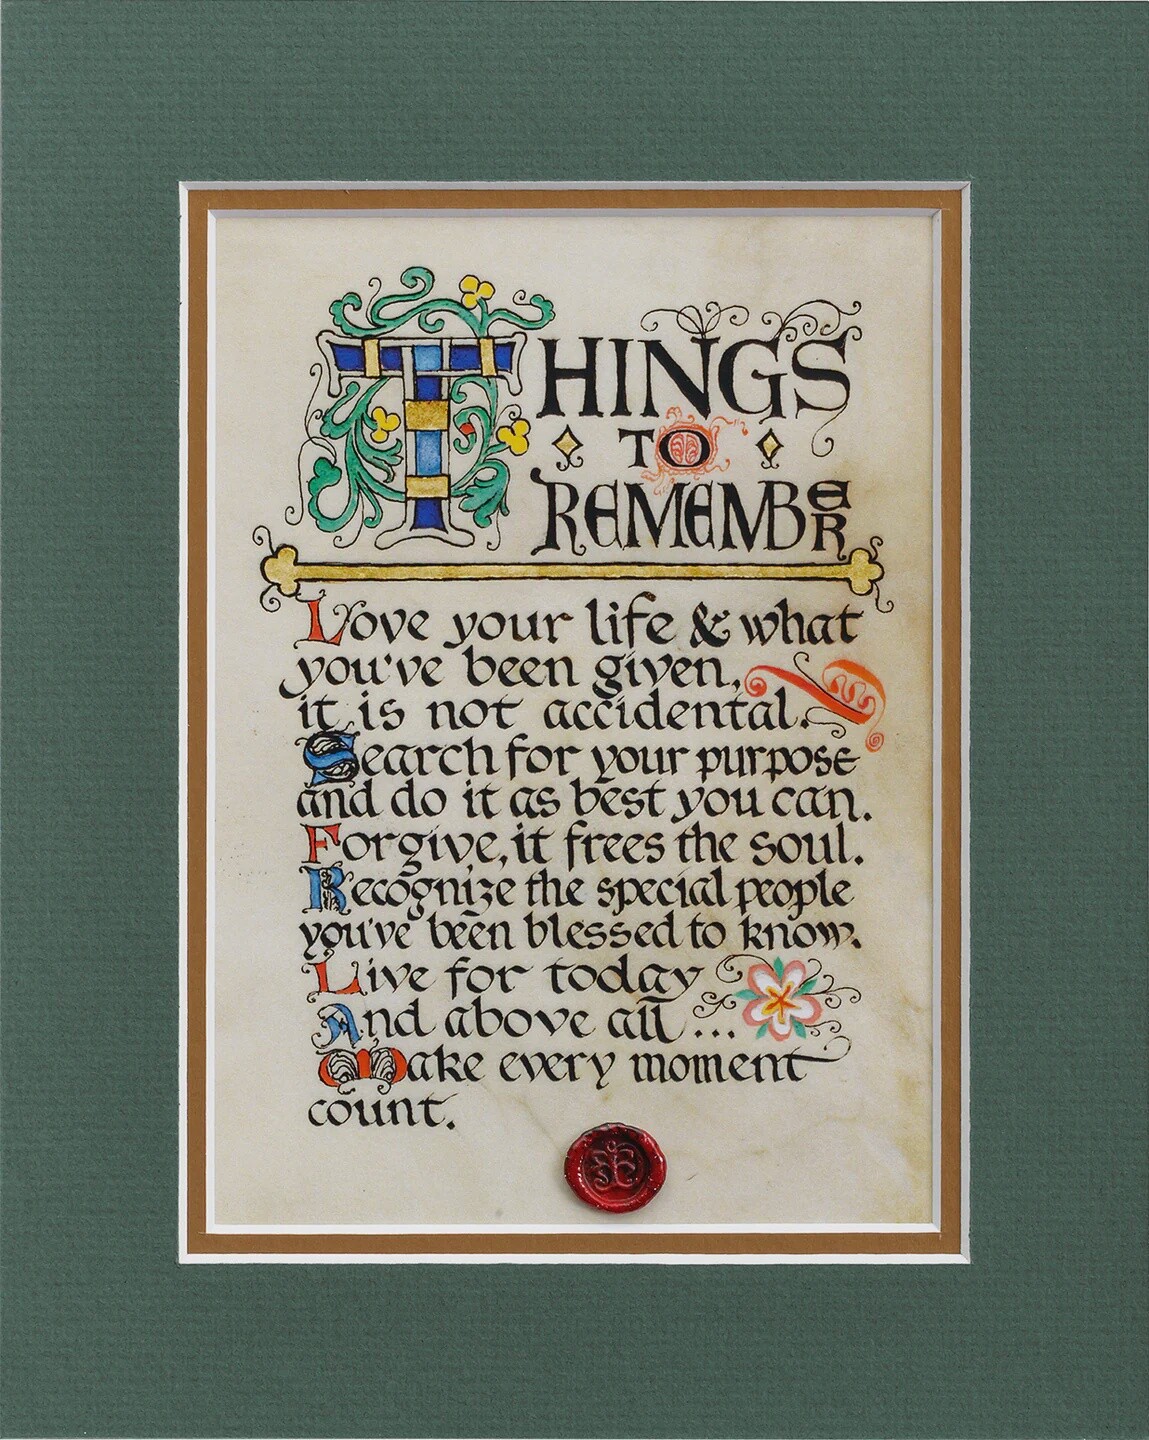 THINGS
TO
REMEMBER
Love your life & what
you've been given,
it is not accidental.
Search for your purpose
and do it as best you can.
Forgive, it frees the soul.
Recognize the special people
you've been blessed to know.
Live for today
And above all ...
Make every moment
count.